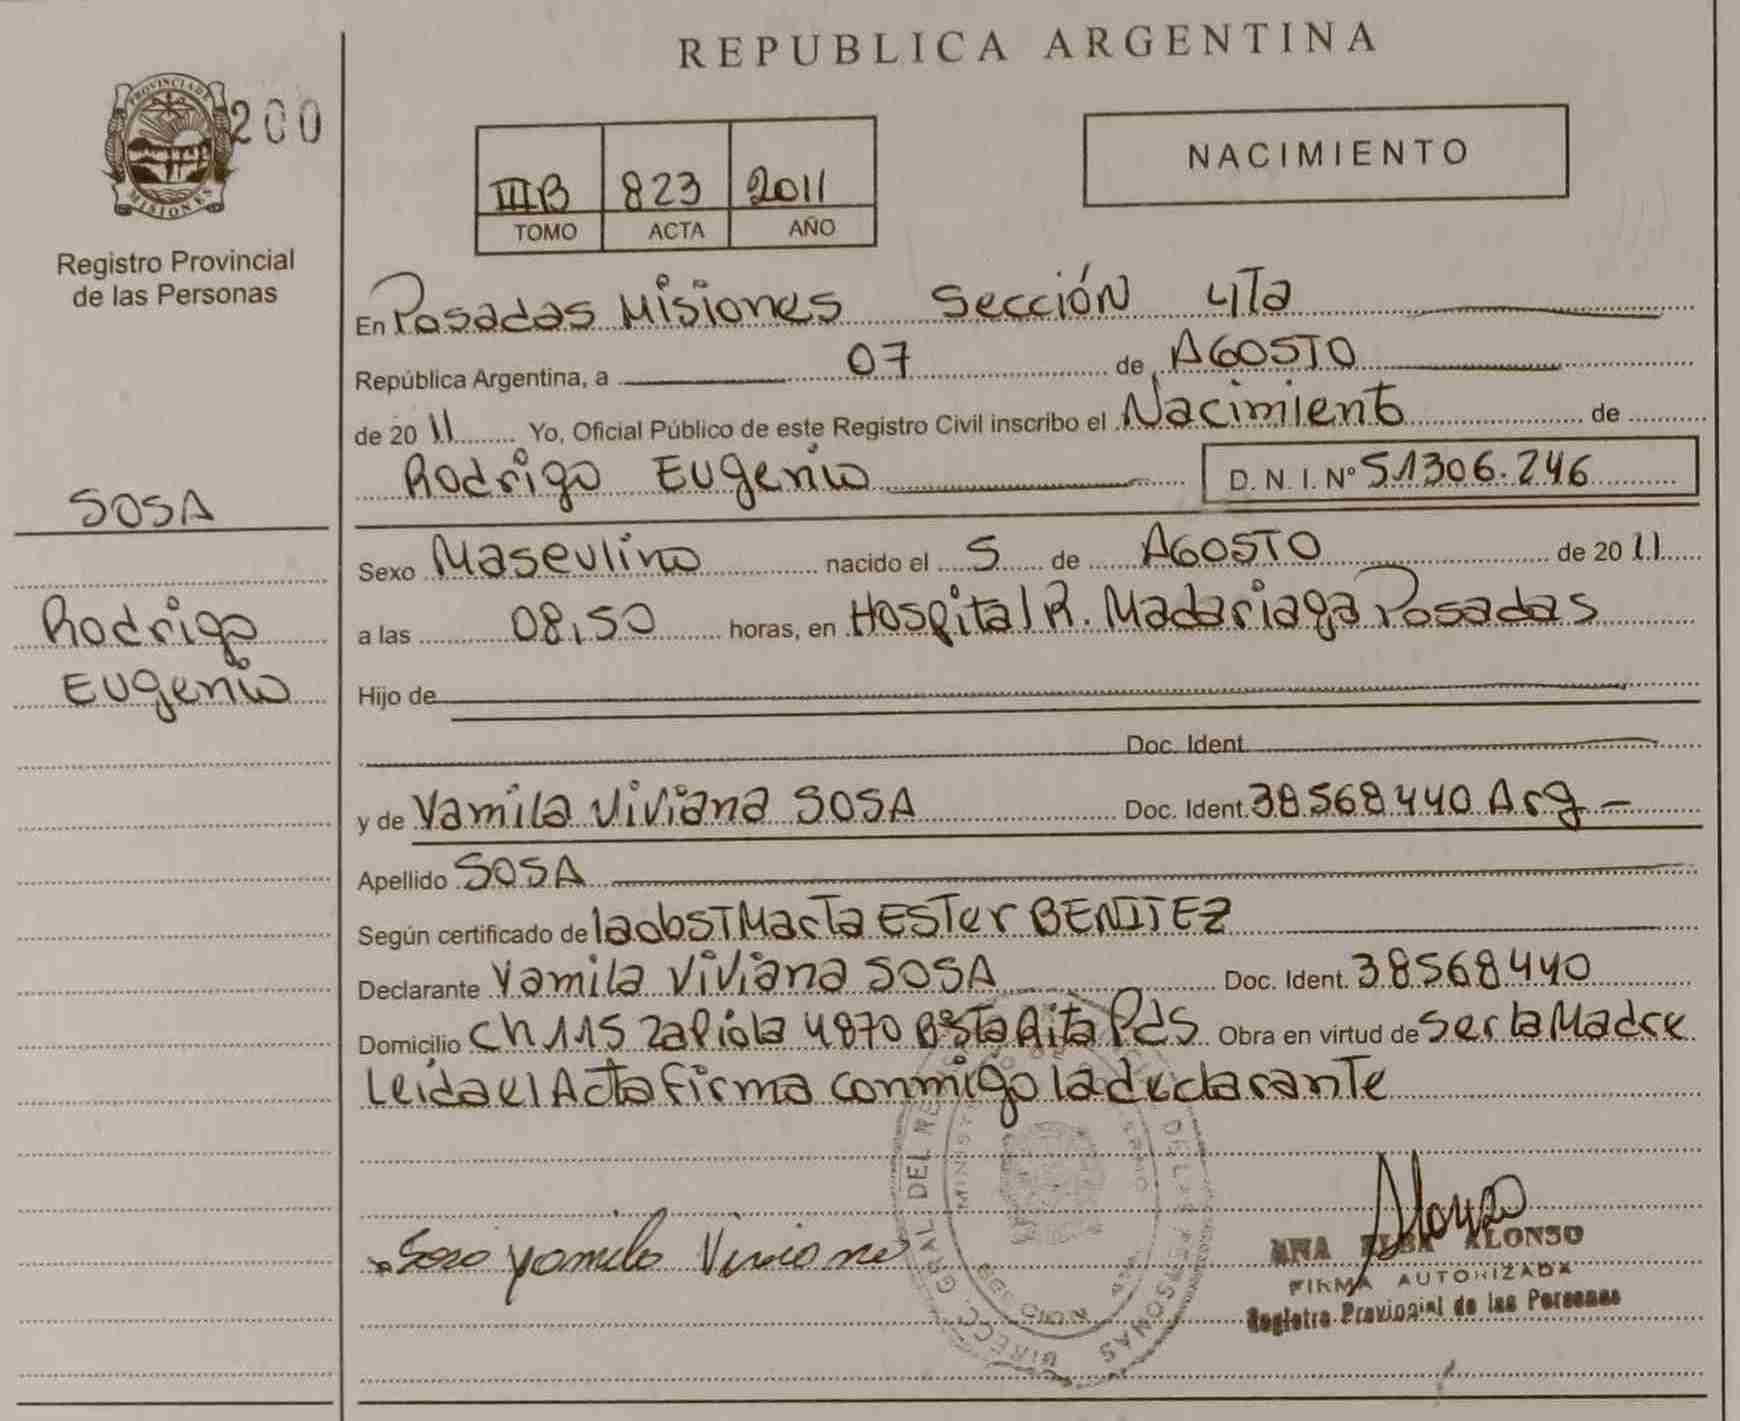 REPUBLICA ARGENTINA
PROVINCIA DE
MISIONES
200
Registro Provincial
de las Personas
IIIB 823 2011
TOMO ACTA AÑO
NACIMIENTO
En Posadas Misiones Sección 4Ta
República Argentina, a 07 de AGOSTO
de 2011 Yo, Oficial Público de este Registro Civil inscribo el Nacimiento de
Rodrigo Eugenio D. N. I. Nº 51306.246
SOSA
Rodrigo
Eugenio
Sexo Masculino nacido el 5 de AGOSTO de 2011
a las 08,50 horas, en Hospital R. Madariaga Posadas
Hijo de
Doc. Ident.
y de Yamila Viviana SOSA Doc. Ident. 38568440 Arg -
Apellido SOSA
Según certificado de la obsT Marta ESTer BENITEZ
Declarante Yamila Viviana SOSA Doc. Ident. 38568440
Domicilio ch 115 Zapiola 4870 Bº Sta Rita Pds Obra en virtud de ser la Madre
Leida el Acta firma conmigo la declarante
Sosa Yamila Viviana
Alonso
ANA ELBA ALONSO
FIRMA AUTORIZADA
Registro Provincial de las Personas
DIRECC. GRAL DEL DE LAS PERSONAS